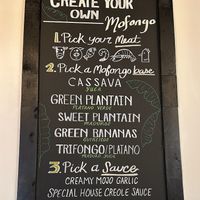 CREATE YOUR
OWN Mofongo
1. Pick your Meat
2. Pick a Mofongo base
CASSAVA
YUCA
GREEN PLANTAIN
PLATANO VERDE
SWEET PLANTAIN
MADUROS
GREEN BANANAS
GUINEITOS
TRIFONGO/PLATANO
3. Pick a Sauce
CREAMY MOJO GARLIC
SPECIAL HOUSE CREOLE SAUCE